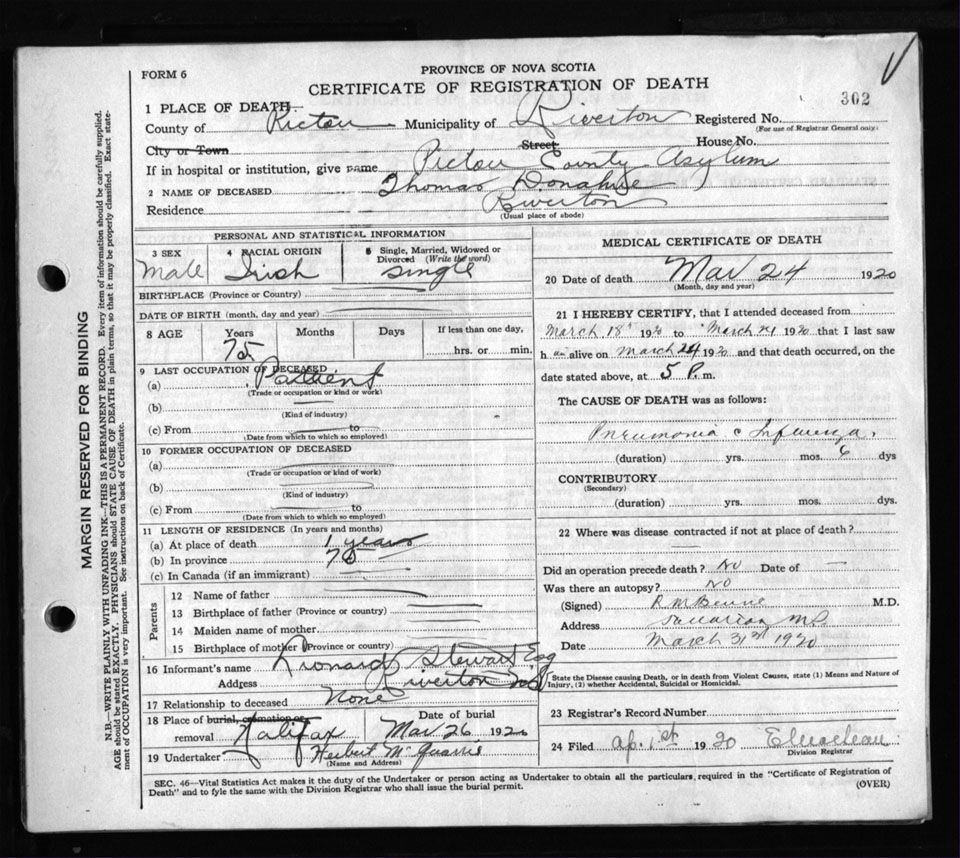 FORM 6
PROVINCE OF NOVA SCOTIA
CERTIFICATE OF REGISTRATION OF DEATH
302
1 PLACE OF DEATH
County of Pictou Municipality of Riverton Registered No.
(For use of Registrar General only)
City or Town Street House No.
If in hospital or institution, give name Pictou County Asylum
2 NAME OF DECEASED Thomas Donahue
Residence Riverton
(Usual place of abode)
PERSONAL AND STATISTICAL INFORMATION
3 SEX Male
4 RACIAL ORIGIN Irish
5 Single, Married, Widowed or Divorced (Write the word) Single
BIRTHPLACE (Province or Country)
DATE OF BIRTH (month, day and year)
8 AGE Years Months Days If less than one day,
75 hrs. or min.
9 LAST OCCUPATION OF DECEASED
(a) Patient
(Trade or occupation or kind or work)
(b)
(Kind of industry)
(c) From to
(Date from which to which so employed)
10 FORMER OCCUPATION OF DECEASED
(a)
(Trade or occupation or kind of work)
(b)
(Kind of industry)
(c) From to
(Date from which to which so employed)
11 LENGTH OF RESIDENCE (In years and months)
(a) At place of death 1 years
(b) In province
(c) In Canada (if an immigrant)
Parents
12 Name of father
13 Birthplace of father (Province or country)
14 Maiden name of mother
15 Birthplace of mother (Province or country)
16 Informant's name Lionard Stewart Esq
Address Riverton N.S
17 Relationship to deceased None
18 Place of burial, cremation or removal Halifax Date of burial Mar 26 1920
19 Undertaker Herbert
(Name and Address)
MEDICAL CERTIFICATE OF DEATH
20 Date of death Mar 24 1920
(Month, day and year)
21 I HEREBY CERTIFY, that I attended deceased from
March 18 1920 to March 1920 that I last saw
h im alive on March 24 1920 and that death occurred, on the
date stated above, at 5 P. m.
The CAUSE OF DEATH was as follows:
Pneumonia c Influenza.
(duration) yrs. mos. 6 dys
CONTRIBUTORY
(Secondary)
(duration) yrs. mos. dys.
22 Where was disease contracted if not at place of death?
Did an operation precede death? No Date of —
Was there an autopsy? No
(Signed) M.D.
Address
Date March 31st 1920
State the Disease causing Death, or in death from Violent Causes, state (1) Means and Nature of
Injury, (2) whether Accidental, Suicidal or Homicidal.
23 Registrar's Record Number
24 Filed Ap. 1st 1920
Division Registrar
SEC. 46—Vital Statistics Act makes it the duty of the Undertaker or person acting as Undertaker to obtain all the particulars, required in the "Certificate of Registration of
Death" and to fyle the same with the Division Registrar who shall issue the burial permit.
(OVER)
MARGIN RESERVED FOR BINDING
N.B.—WRITE PLAINLY WITH UNFADING INK—THIS IS A PERMANENT RECORD. Every item of information should be carefully supplied.
AGE should be stated EXACTLY. PHYSICIANS should STATE CAUSE OF DEATH in plain terms, so that it may be properly classified. Exact statement
of OCCUPATION is very important. See instructions on back of Certificate.